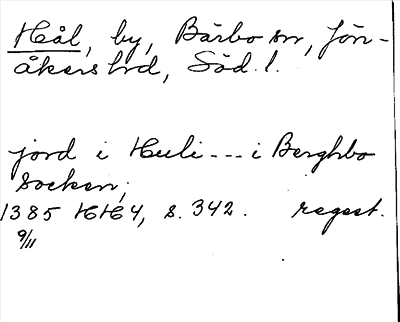 Hål, by, Bärbo sn, Jön-
åkers hd, Söd. l.
jord i Huli--- i Berghbo
socken;
1385 HH4, s. 342. regest.
9/11